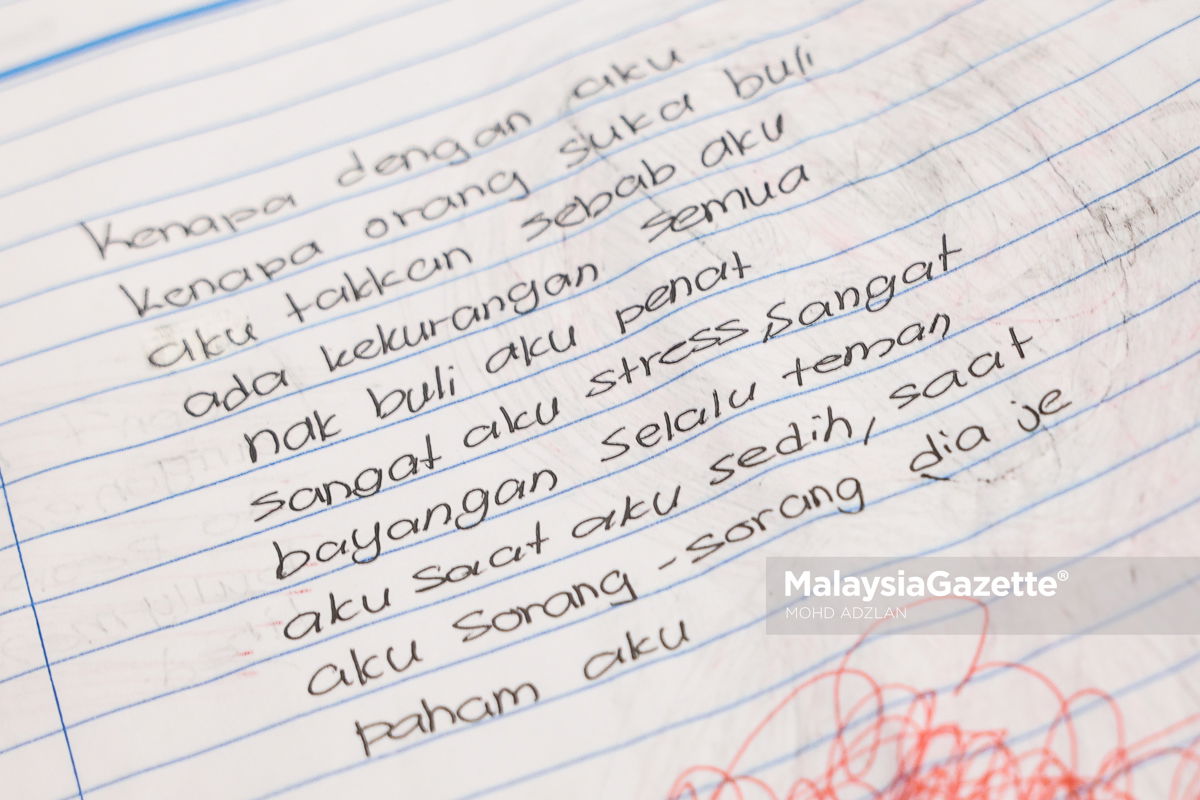 Kenapa dengan aku
kenapa orang suka buli
aku takkan sebab aku
ada kekurangan semua
nak buli aku penat
sangat aku stress, sangat
bayangan selalu teman
aku saat aku sedih, saat
aku sorang-sorang dia je
paham aku
MalaysiaGazette®
MOHD ADZLAN